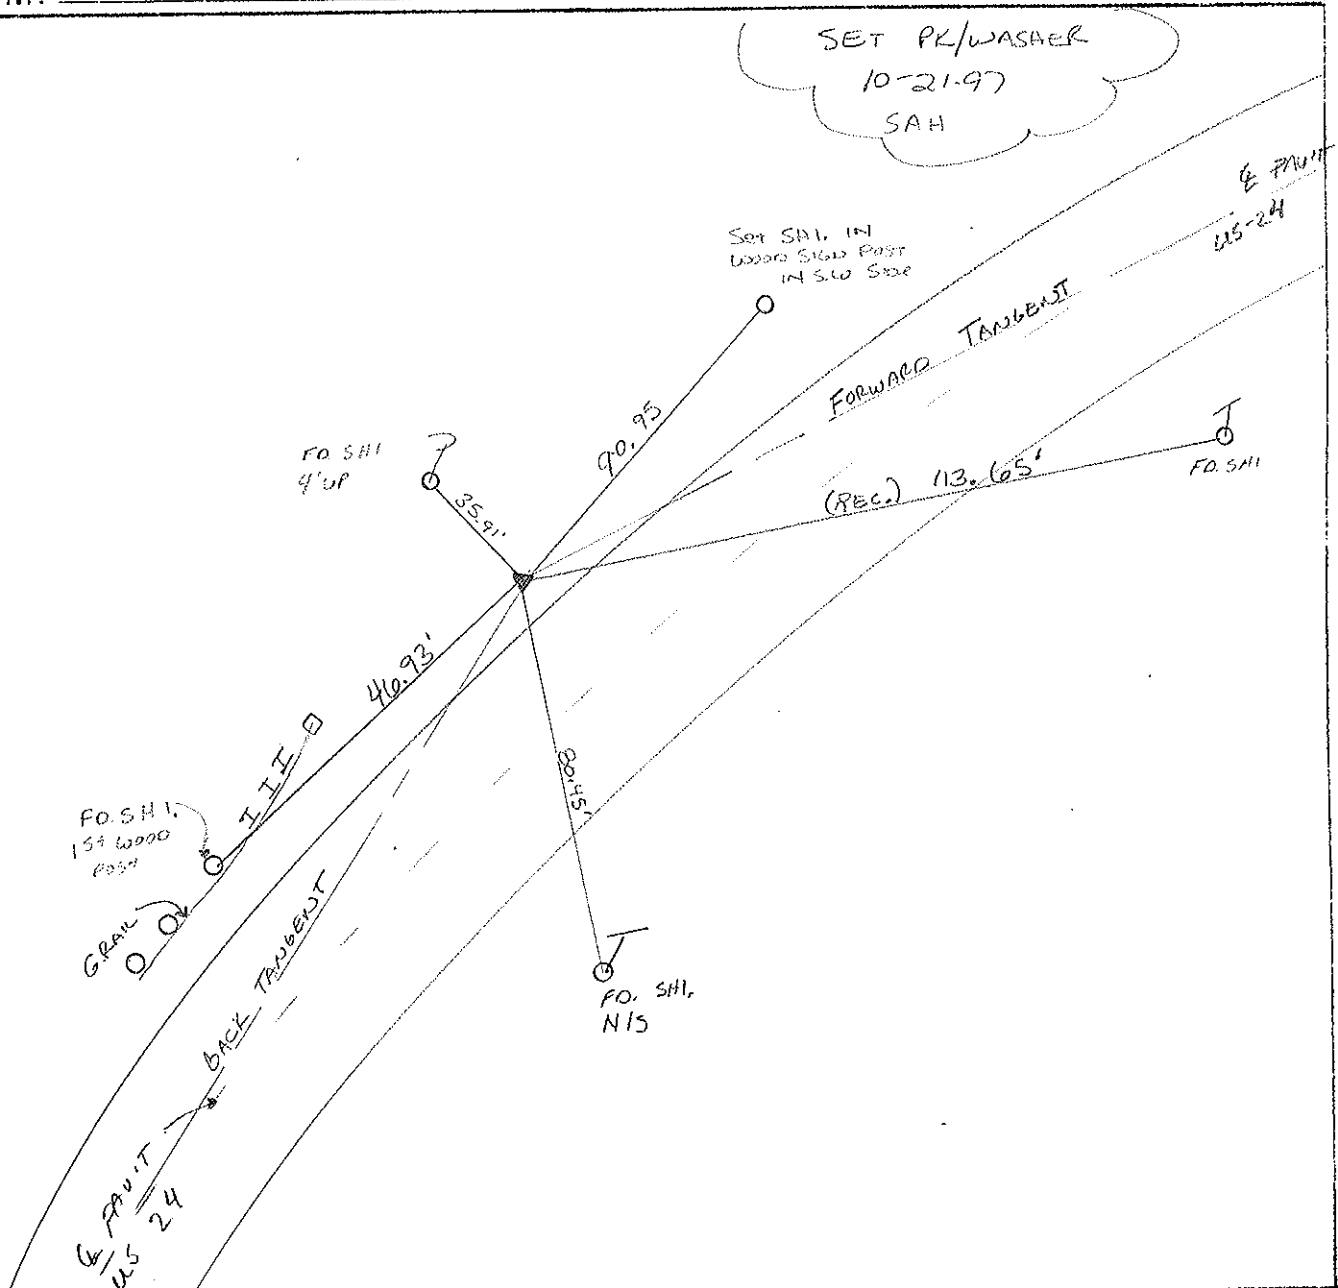 SET PK/WASHER
10-21-97
SAH
℄ PAV'T
US-24
Set SHI. IN
WOOD SIGN POST
IN S.W SIDE
FORWARD TANGENT
90.95
FO. SHI
4' UP
35.91'
(REC.) 113.65'
FO. SHI
46.93'
80.45'
I I I
FO. SHI.
1st WOOD
POST
G.RAIL
BACK TANGENT
FO. SHI.
N/S
℄ PAV'T
US 24